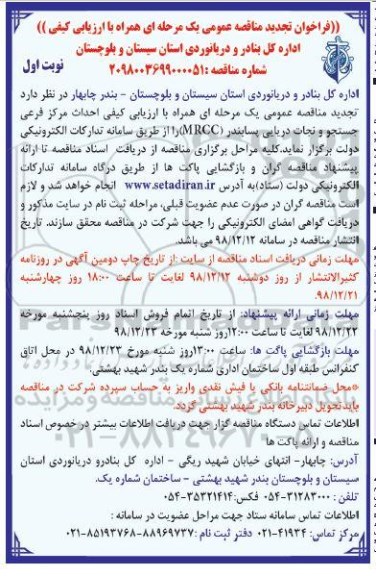 ((فراخوان تجدید مناقصه عمومی یک مرحله ای همراه با ارزیابی کیفی))
اداره کل بنادر و دریانوردی استان سیستان و بلوچستان
شماره مناقصه :۲۰۹۸۰۰۳۶۹۹۰۰۰۰۵۱
نوبت اول
اداره کل بنادر و دریانوردی استان سیستان و بلوچستان - بندر چابهار در نظر دارد
تجدید مناقصه عمومی یک مرحله ای همراه با ارزیابی کیفی احداث مرکز فرعی
جستجو و نجات دریایی پسابندر (MRCC)را از طریق سامانه تدارکات الکترونیکی
دولت برگزار نماید.کلیه مراحل برگزاری مناقصه از دریافت اسناد مناقصه تا ارائه
پیشنهاد مناقصه گران و بازگشایی پاکت ها از طریق درگاه سامانه تدارکات
الکترونیکی دولت (ستاد)به آدرس www.setadiran.ir انجام خواهد شد و لازم
است مناقصه گران در صورت عدم عضویت قبلی، مراحله ثبت نام در سایت مذکور و
دریافت گواهی امضای الکترونیکی را جهت شرکت در مناقصه محقق سازند. تاریخ
انتشار مناقصه در سامانه ۹۸/۱۲/۱۲ می باشد.
مهلت زمانی دریافت اسناد مناقصه از سایت :از تاریخ چاپ دومین آگهی در روزنامه
کثیرالانتشار از روز دوشنبه ۹۸/۱۲/۱۲ لغایت تا ساعت ۱۸:۰۰ روز چهارشنبه
۹۸/۱۲/۲۱.
مهلت زمانی ارائه پیشنهاد: از تاریخ اتمام فروش اسناد روز پنجشنبه مورخه
۹۸/۱۲/۲۲ لغایت تا ساعت ۱۲:۰۰روز شنبه مورخه ۹۸/۱۲/۲۳
مهلت بازگشایی پاکت ها: ساعت ۱۳:۰۰روز شنبه مورخ ۹۸/۱۲/۲۳ در محل اتاق
کنفرانس طبقه اول ساختمان اداری شماره یک بندر شهید بهشتی.
*محل ضمانتنامه بانکی یا فیش نقدی واریز به حساب سپرده شرکت در مناقصه
باید تحویل دبیرخانه بندر شهید بهشتی گردد.
اطلاعات تماس دستگاه مناقصه گزار جهت دریافت اطلاعات بیشتر در خصوص اسناد
مناقصه و ارائه پاکت ها
آدرس: چابهار- انتهای خیابان شهید ریگی - اداره کل بنادرو دریانوردی استان
سیستان و بلوچستان بندر شهید بهشتی - ساختمان شماره یک.
تلفن: ۰۵۴-۳۱۲۸۳۰۰۰ فکس:۰۵۴-۳۵۳۲۱۴۱۴
اطلاعات تماس سامانه ستاد جهت مراحل عضویت در سامانه :
مرکز تماس: ۰۲۱-۴۱۹۳۴ دفتر ثبت نام :۸۸۹۶۹۷۳۷-۰۲۱-۸۵۱۹۳۷۶۸